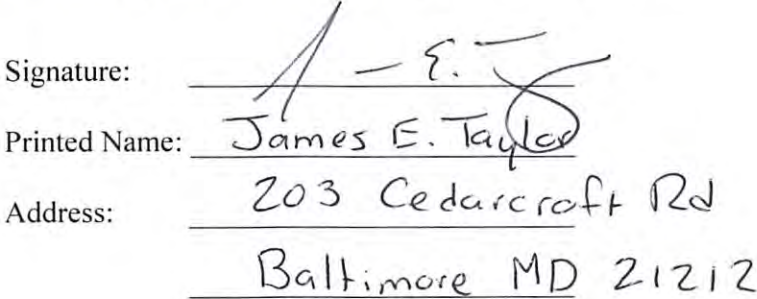 Signature:
Printed Name: James E. Taylor
Address: 203 Cedarcroft Rd
Baltimore MD 21212